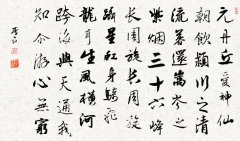 元丹丘愛神仙
朝飲潁川之清
流暮還嵩岑之
紫煙三十六峰
長周旋長周旋
躡星虹身騎飛
龍耳生風橫河
跨海與天通我
知爾游心無窮